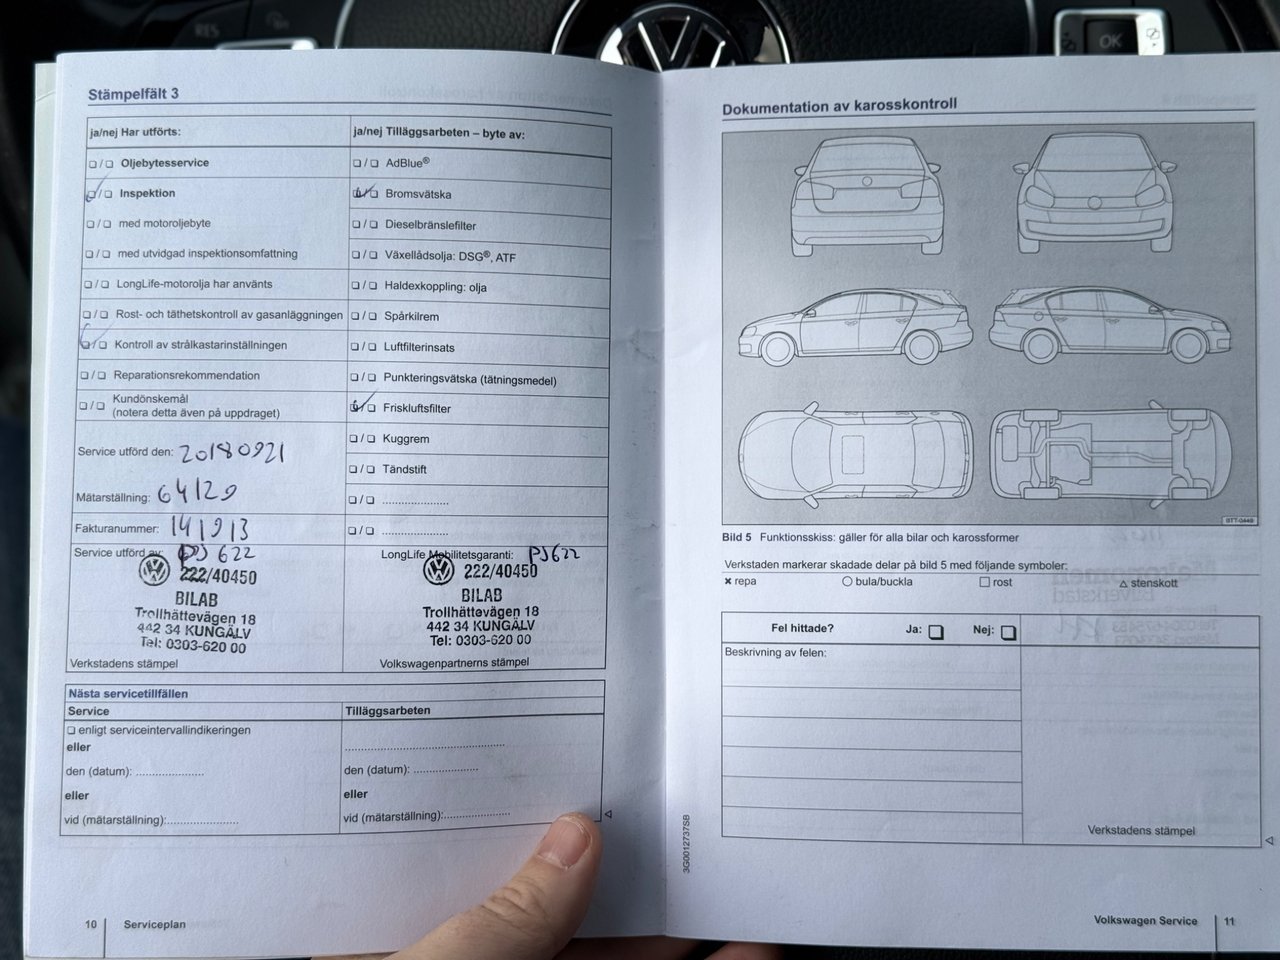 RES
OK
Stämpelfält 3
ja/nej Har utförts:
❏ / ❏ Oljebytesservice
❏ / ❏ Inspektion
❏ / ❏ med motoroljebyte
❏ / ❏ med utvidgad inspektionsomfattning
❏ / ❏ LongLife-motorolja har använts
❏ / ❏ Rost- och täthetskontroll av gasanläggningen
❏ / ❏ Kontroll av strålkastarinställningen
❏ / ❏ Reparationsrekommendation
❏ / ❏ Kundönskemål
(notera detta även på uppdraget)
Service utförd den: 20180921
Mätarställning: 64129
Fakturanummer: 141913
Service utförd av: PJ 622
222/40450
BILAB
Trollhättevägen 18
442 34 KUNGÄLV
Tel: 0303-620 00
Verkstadens stämpel
ja/nej Tilläggsarbeten – byte av:
❏ / ❏ AdBlue®
❏ / ❏ Bromsvätska
❏ / ❏ Dieselbränslefilter
❏ / ❏ Växellådsolja: DSG®, ATF
❏ / ❏ Haldexkoppling: olja
❏ / ❏ Spårkilrem
❏ / ❏ Luftfilterinsats
❏ / ❏ Punkteringsvätska (tätningsmedel)
❏ / ❏ Friskluftsfilter
❏ / ❏ Kuggrem
❏ / ❏ Tändstift
❏ / ❏ ......................
❏ / ❏ ......................
LongLife Mobilitetsgaranti: PJ622
222/40450
BILAB
Trollhättevägen 18
442 34 KUNGÄLV
Tel: 0303-620 00
Volkswagenpartnerns stämpel
Nästa servicetillfällen
Service
❏ enligt serviceintervallindikeringen
eller
den (datum): ......................
eller
vid (mätarställning):......................
Tilläggsarbeten
......................................................
den (datum): .....................
eller
vid (mätarställning):.....................
10
Serviceplan
Dokumentation av karosskontroll
BTT-0449
Bild 5 Funktionsskiss: gäller för alla bilar och karossformer
Verkstaden markerar skadade delar på bild 5 med följande symboler:
✖ repa
○ bula/buckla
□ rost
△ stenskott
Fel hittade?
Ja: ❏
Nej: ❏
Beskrivning av felen:
Verkstadens stämpel
3G0012737SB
Volkswagen Service
11